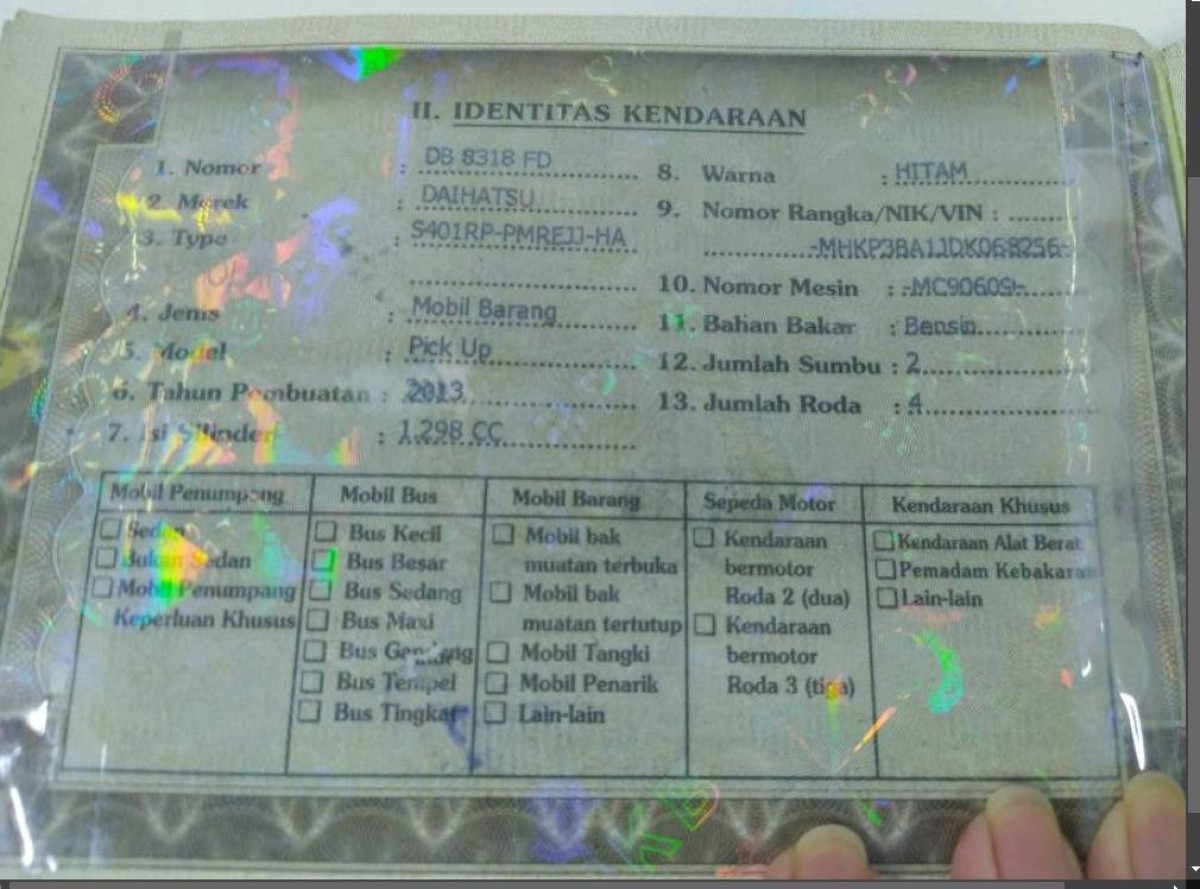 II. IDENTITAS KENDARAAN
1. Nomor : DB 8318 FD
2. Merek : DAIHATSU
3. Type : S401RP-PMREJJ-HA
4. Jenis : Mobil Barang
5. Model : Pick Up
6. Tahun Pembuatan : 2013
7. Isi Silinder : 1.298 CC
8. Warna : HITAM
9. Nomor Rangka/NIK/VIN : ........
-MHKP3BA1JDK068256-
10. Nomor Mesin : -MC90609-
11. Bahan Bakar : Bensin
12. Jumlah Sumbu : 2
13. Jumlah Roda : 4
Mobil Penumpang
☐ Sedan
☐ Bukan Sedan
☐ Mobil Penumpang
Keperluan Khusus
Mobil Bus
☐ Bus Kecil
☐ Bus Besar
☐ Bus Sedang
☐ Bus Maxi
☐ Bus Gandeng
☐ Bus Tempel
☐ Bus Tingkat
Mobil Barang
☐ Mobil bak
muatan terbuka
☐ Mobil bak
muatan tertutup
☐ Mobil Tangki
☐ Mobil Penarik
☐ Lain-lain
Sepeda Motor
☐ Kendaraan
bermotor
Roda 2 (dua)
☐ Kendaraan
bermotor
Roda 3 (tiga)
Kendaraan Khusus
☐ Kendaraan Alat Berat
☐ Pemadam Kebakaran
☐ Lain-lain